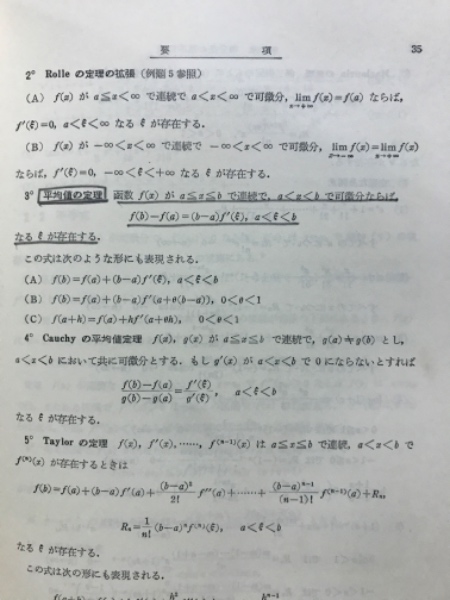 要　項　35
2° Rolle の定理の拡張 (例題 5 参照)
(A) f(x) が a≦x<∞ で連続で a<x<∞ で可微分, lim_{x→+∞} f(x)=f(a) ならば,
f′(ξ)=0, a<ξ<∞ なる ξ が存在する.
(B) f(x) が −∞<x<∞ で連続で −∞<x<∞ で可微分, lim_{x→−∞} f(x)=lim_{x→+∞} f(x)
ならば, f′(ξ)=0, −∞<ξ<+∞ なる ξ が存在する.
3° 平均値の定理 函数 f(x) が a≦x≦b で連続で, a<x<b で可微分ならば,
f(b)−f(a)=(b−a)f′(ξ), a<ξ<b
なる ξ が存在する.
この式は次のような形にも表現される.
(A) f(b)=f(a)+(b−a)f′(ξ), a<ξ<b
(B) f(b)=f(a)+(b−a)f′(a+θ(b−a)), 0<θ<1
(C) f(a+h)=f(a)+hf′(a+θh), 0<θ<1
4° Cauchy の平均値定理 f(x), g(x) が a≦x≦b で連続で, g(a)≠g(b) とし,
a<x<b において共に可微分とする. もし g′(x) が a<x<b で 0 にならないとすれば
(f(b)−f(a))/(g(b)−g(a))=f′(ξ)/g′(ξ), a<ξ<b
なる ξ が存在する.
5° Taylor の定理 f(x), f′(x), ……, f^(n−1)(x) は a≦x≦b で連続, a<x<b で
f^(n)(x) が存在するときは
f(b)=f(a)+(b−a)f′(a)+(b−a)²/2! f″(a)+……+(b−a)^(n−1)/(n−1)! f^(n−1)(a)+Rₙ,
Rₙ=1/n! (b−a)ⁿf^(n)(ξ), a<ξ<b
なる ξ が存在する.
この式は次の形にも表現される.